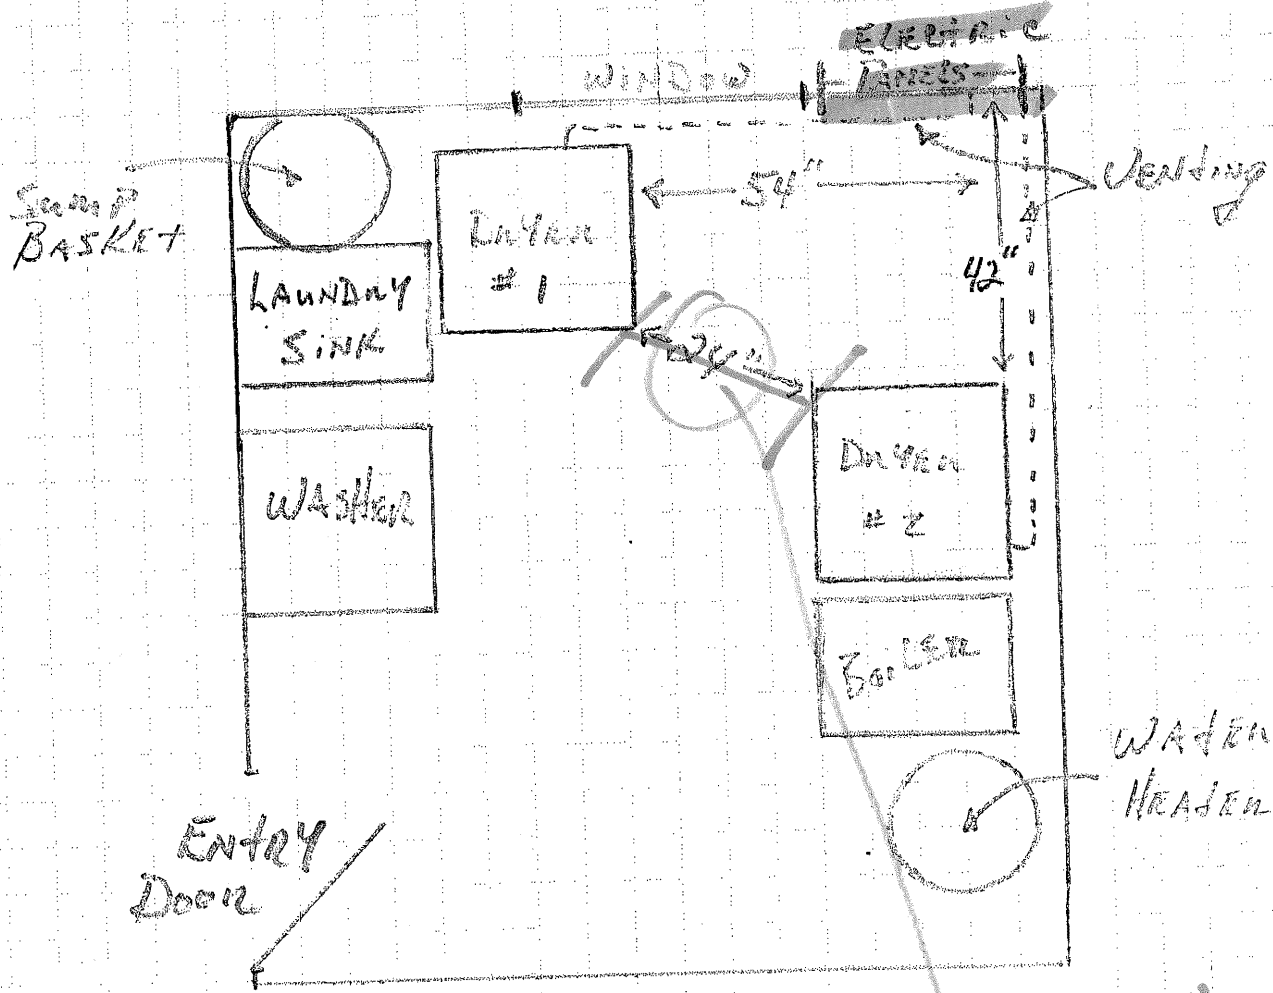 ELECTRIC
PANELS
WINDOW
54"
VENTING
SUMP
BASKET
DRYER
# 1
42"
LAUNDRY
SINK
DRYER
# 2
WASHER
BOILER
WATER
HEATER
ENTRY
DOOR